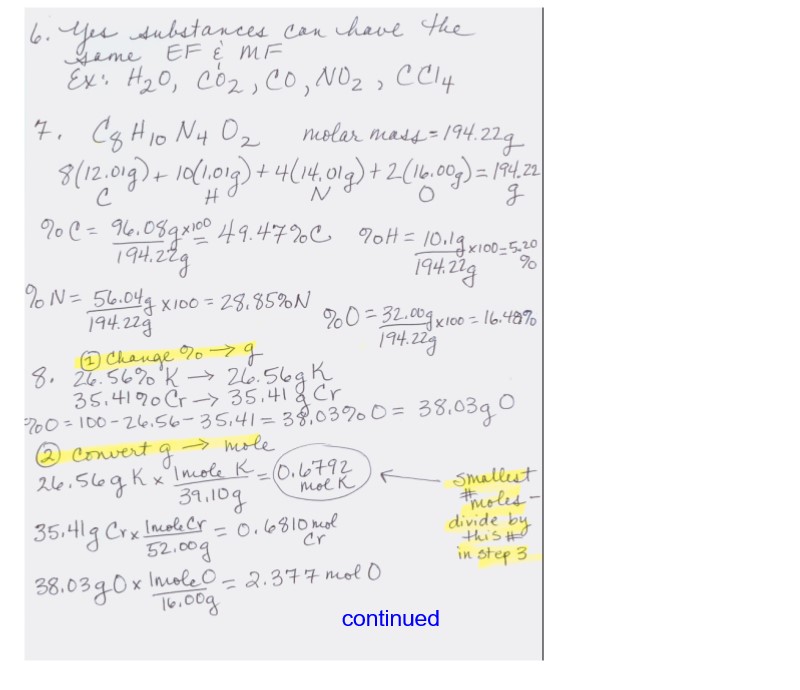 6. Yes substances can have the
same EF & MF
Ex: H2O, CO2, CO, NO2, CCl4
7. C8 H10 N4 O2 molar mass = 194.22g
8(12.01g) + 10(1.01g) + 4(14.01g) + 2(16.00g) = 194.22
C H N O g
%C = 96.08g x100 = 49.47%C %H = 10.1g x100 = 5.20
194.22g 194.22g %
%N = 56.04g x100 = 28.85%N %O = 32.00g x100 = 16.48%
194.22g 194.22g
① Change % → g
8. 26.56% K → 26.56g K
35.41% Cr → 35.41 g Cr
%O = 100 - 26.56 - 35.41 = 38.03% O = 38.03g O
② Convert g → mole
26.56g K x 1mole K = 0.6792
39.10g mol K
smallest
# moles -
divide by
this #
in step 3
35.41g Cr x 1mole Cr = 0.6810 mol
52.00g Cr
38.03g O x 1mole O = 2.377 mol O
16.00g
continued